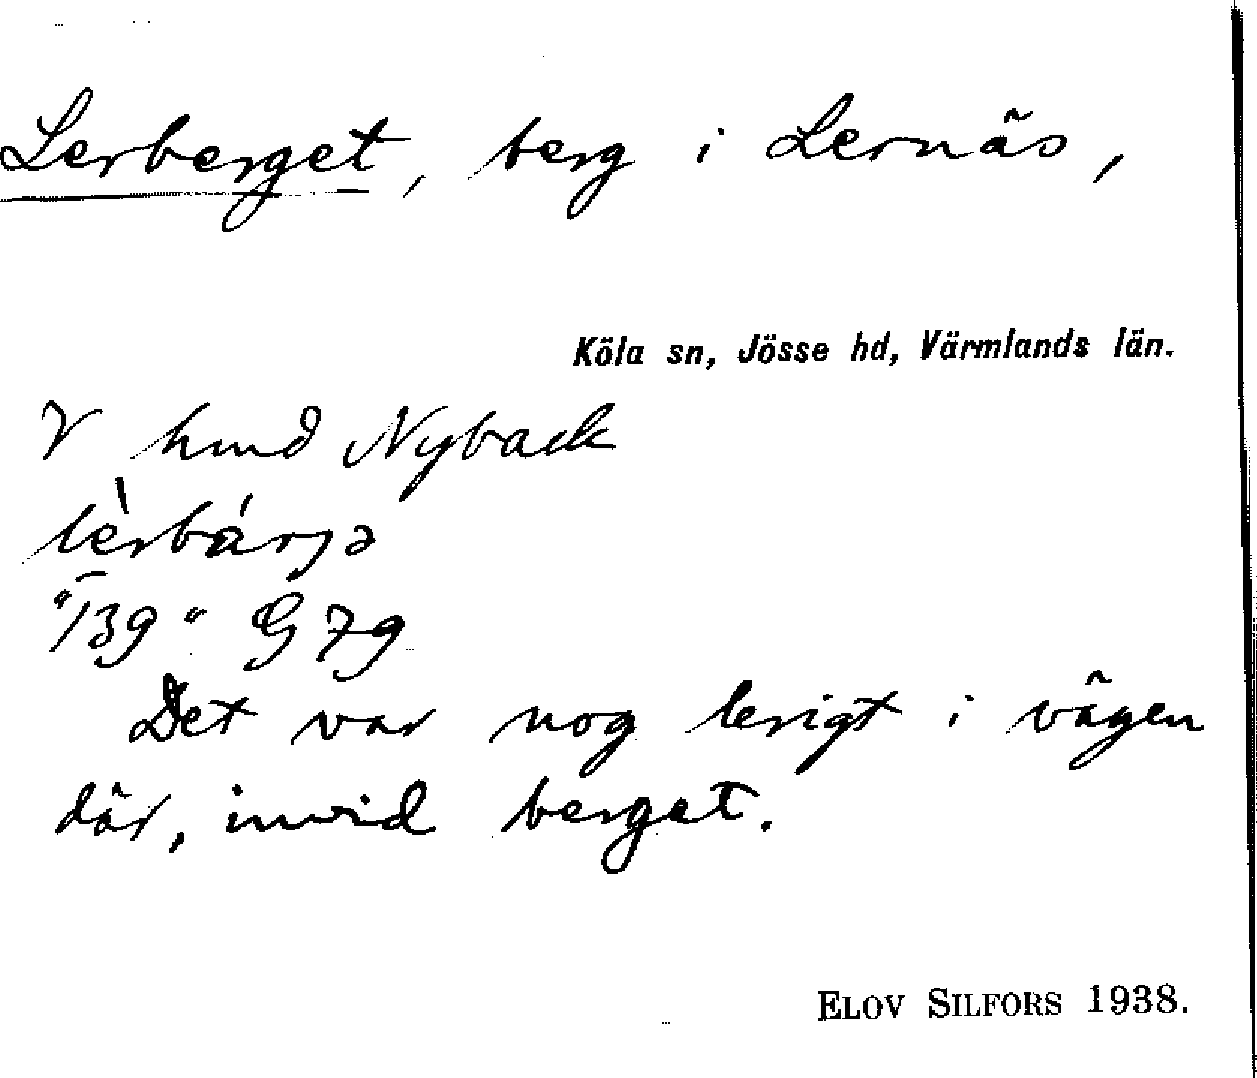 Lerberget, berg i Lernäs,
Köla sn, Jösse hd, Värmlands län.
V hmd Nyback
lèrbá̀rjə
"139" G 79
Det var nog lerigt i vägen
där, invid berget.
ELOV SILFORS 1938.